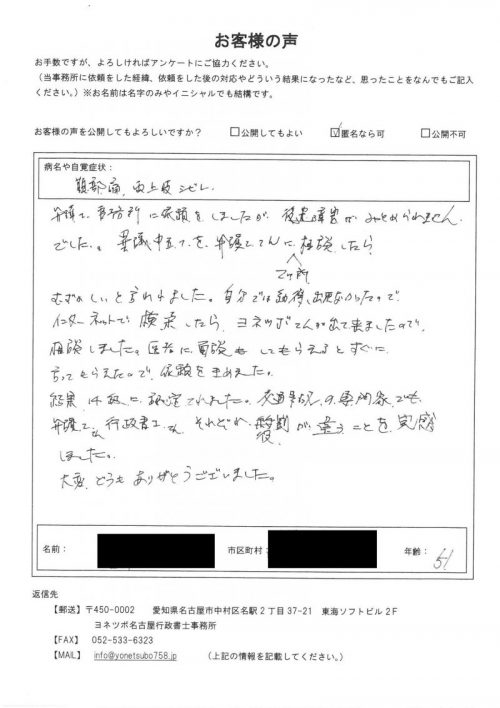 お客様の声
お手数ですが、よろしければアンケートにご協力ください。
(当事務所に依頼をした経緯、依頼をした後の対応やどういう結果になったなど、思ったことをなんでもご記入
ください。)※お名前は名字のみやイニシャルでも結構です。
お客様の声を公開してもよろしいですか? □公開してもよい ☑匿名なら可 □公開不可
病名や自覚症状:
頸部痛、両上肢シビレ
弁護士事務所に依頼をしましたが、後遺障害がみとめられません
でした。異議申立てを、弁護士さんに相談したら
2ヶ所
むずかしいと言われました。自分では勉強出来なかったので
インターネットで検索したら、ヨネツボさんが出て来ましたので、
相談しました。医者に面談もしてもらえるとすぐに
言ってもらえたので、依頼を決めました。
結果14級に認定されました。交通事故の専門家でも、
弁護士さん行政書士さん、それぞれ役割が違うことを実感
しました。
大変どうもありがとうございました。
名前: 市区町村: 年齢: 51
返信先
【郵送】〒450-0002 愛知県名古屋市中村区名駅2丁目37-21 東海ソフトビル2F
ヨネツボ名古屋行政書士事務所
【FAX】 052-533-6323
【MAIL】 info@yonetsubo758.jp (上記の情報を記載してください。)